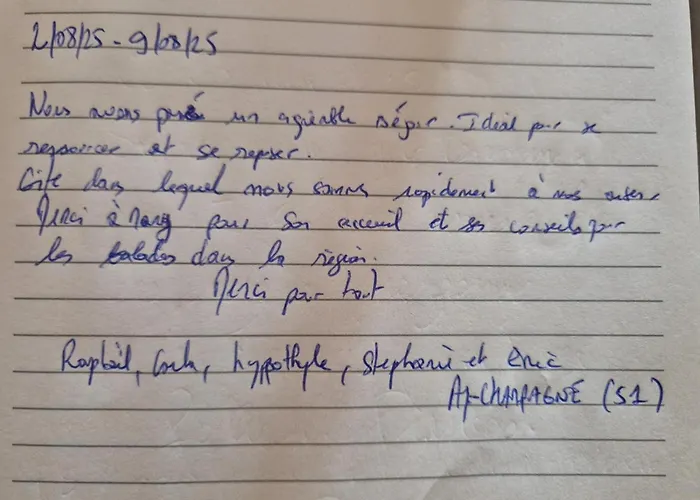 2/08/25 - 9/08/25
Nous avons passé un agréable séjour. Idéal pour se
ressourcer et se reposer.
Gîte dans lequel nous sommes rapidement à nos aises.
Merci à pour son acceuil et ses conseils pour
les balades dans la région.
Merci pour tout
Raphaël, hyppothyle, Stephanie et Éric
AY-CHAMPAGNE (51)